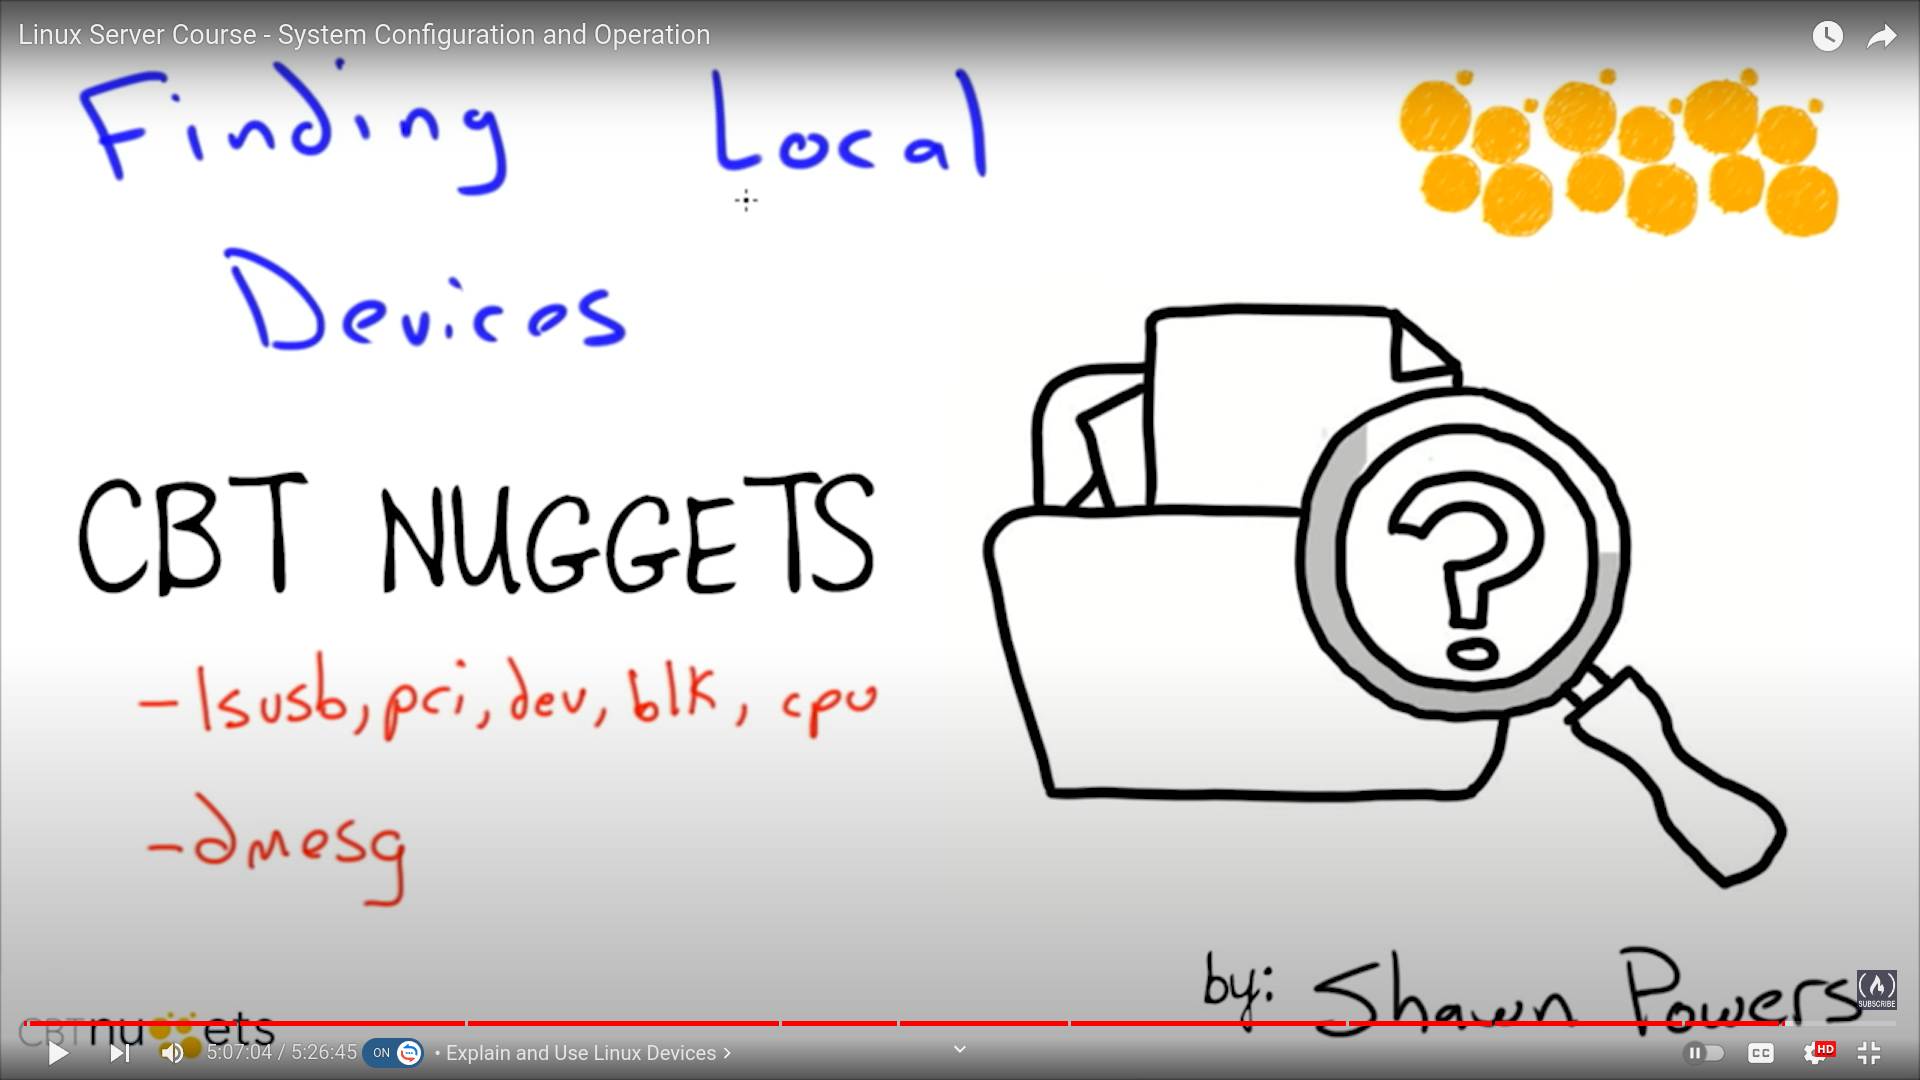 Linux Server Course - System Configuration and Operation
Finding Local
Devices
CBT NUGGETS
-lsusb, pci, dev, blk, cpu
-dmesg
?
by: Shawn Powers
SUBSCRIBE
CBTnuggets
5:07:04 / 5:26:45 ON • Explain and Use Linux Devices >
CC
HD